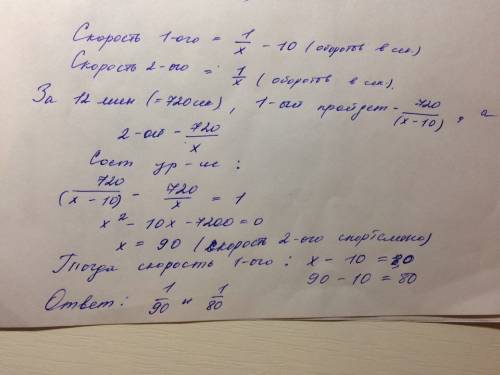 Скорость 1-ого = 1/x - 10 (оборотов в сек)
Скорость 2-ого = 1/x (оборотов в сек).
За 12 мин (=720сек), 1-ый пройдет - 720/(x-10), а
2-ой - 720/x
Сост ур-ие:
720/(x-10) - 720/x = 1
x² - 10x - 7200 = 0
x = 90 (скорость 2-ого спортсмена)
Тогда скорость 1-ого: x - 10 = 80
90 - 10 = 80
Ответ: 1/90 и 1/80